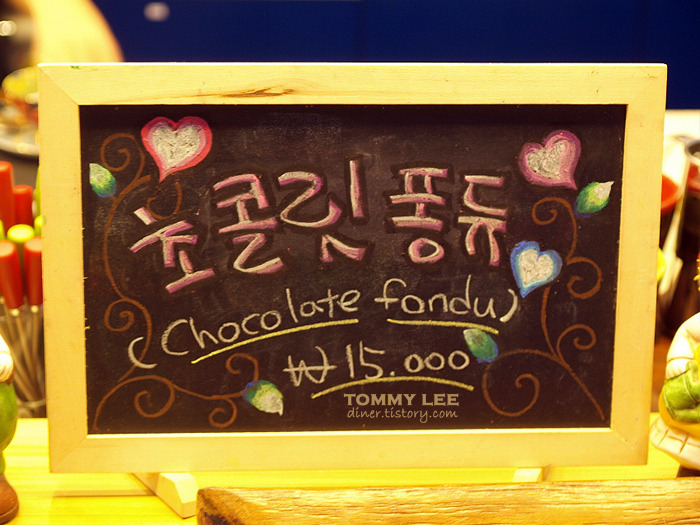 초콜릿 퐁듀
(Chocolate fondu)
₩15.000
TOMMY LEE
diner.tistory.com